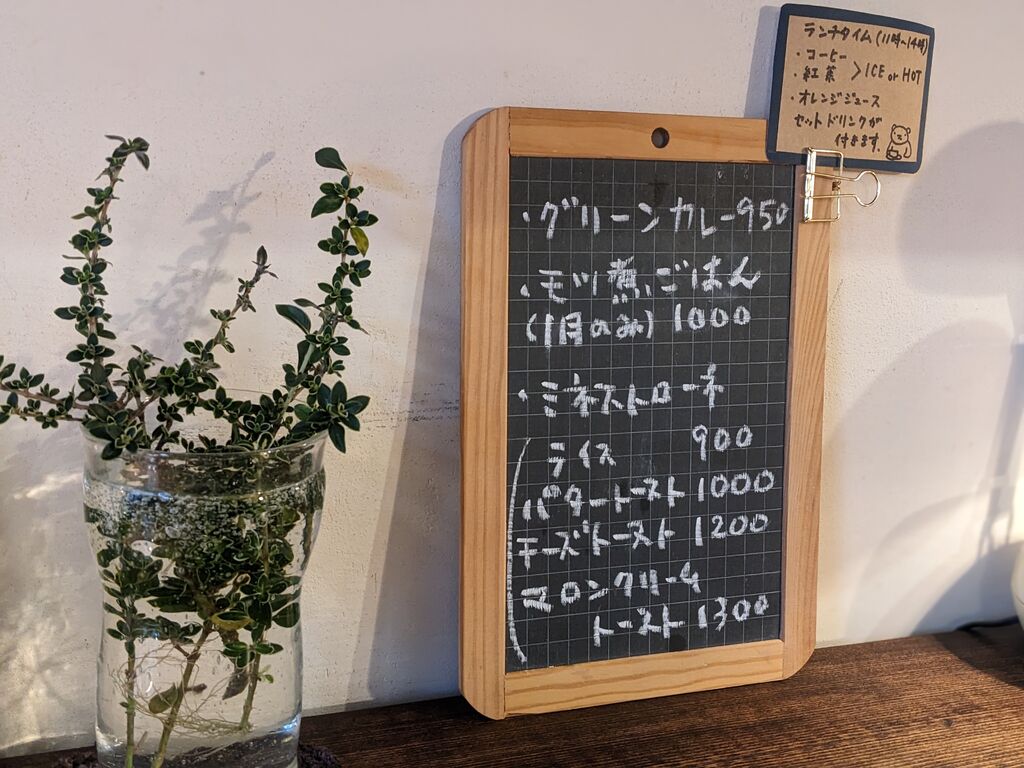 ランチタイム(11時~14時)
・コーヒー
・紅茶 > ICE or HOT
・オレンジジュース
セットドリンクが
付きます.
・グリーンカレー950
・モツ煮ごはん
(1月のみ) 1000
・ミネストローネ
ライス 900
バタートースト 1000
チーズトースト 1200
マロンクリーム
トースト 1300